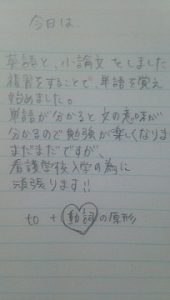 今日は、
英語と、小論文をしました
復習をすることで、単語を覚え
始めました。
単語が分かると文の意味が
分かるので勉強が楽しくなります
まだまだですが、
看護学校入学の為に
頑張ります!!
to + 動詞の原形